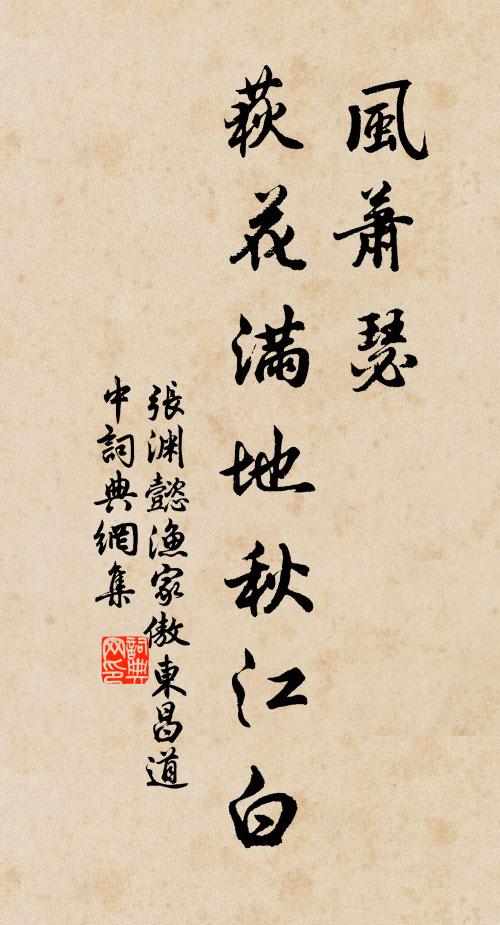 風蕭瑟
萩花满地秋江白
張渊懿漁家傲東昌道
中詞典網集
詞典
网印